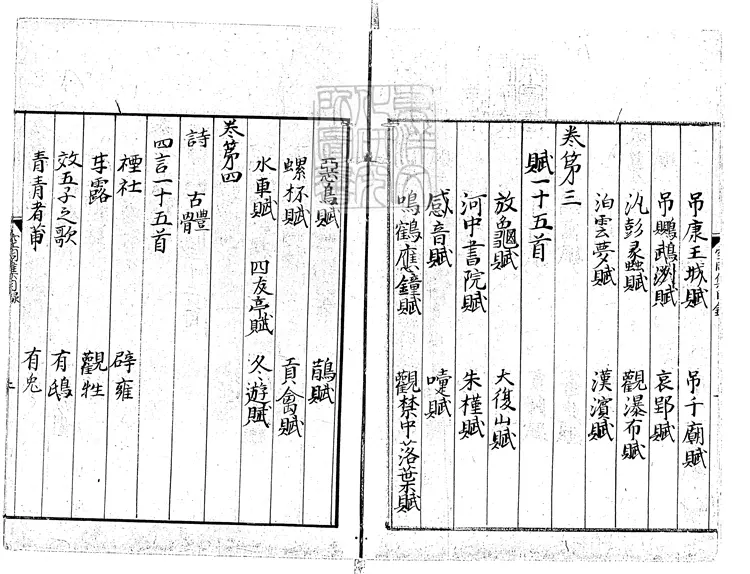 吊康王城賦 吊于廟賦
吊鸚鵡洲賦 哀郢賦
汎彭蠡賦 觀瀑布賦
泊雲夢賦 漢濱賦
卷第三
賦一十五首
放龜賦 大復山賦
河中書院賦 朱槿賦
感音賦 嚏賦
鳴鶴應鐘賦 觀禁中落葉賦
惡鳥賦 賦
螺杯賦 貢禽賦
水車賦 四友亭賦 冬遊賦
卷第四
詩 古體
四言一十五首
禋社 辟雍
露 觀牲
效五子之歌 有鴟
青青者莆 有兔